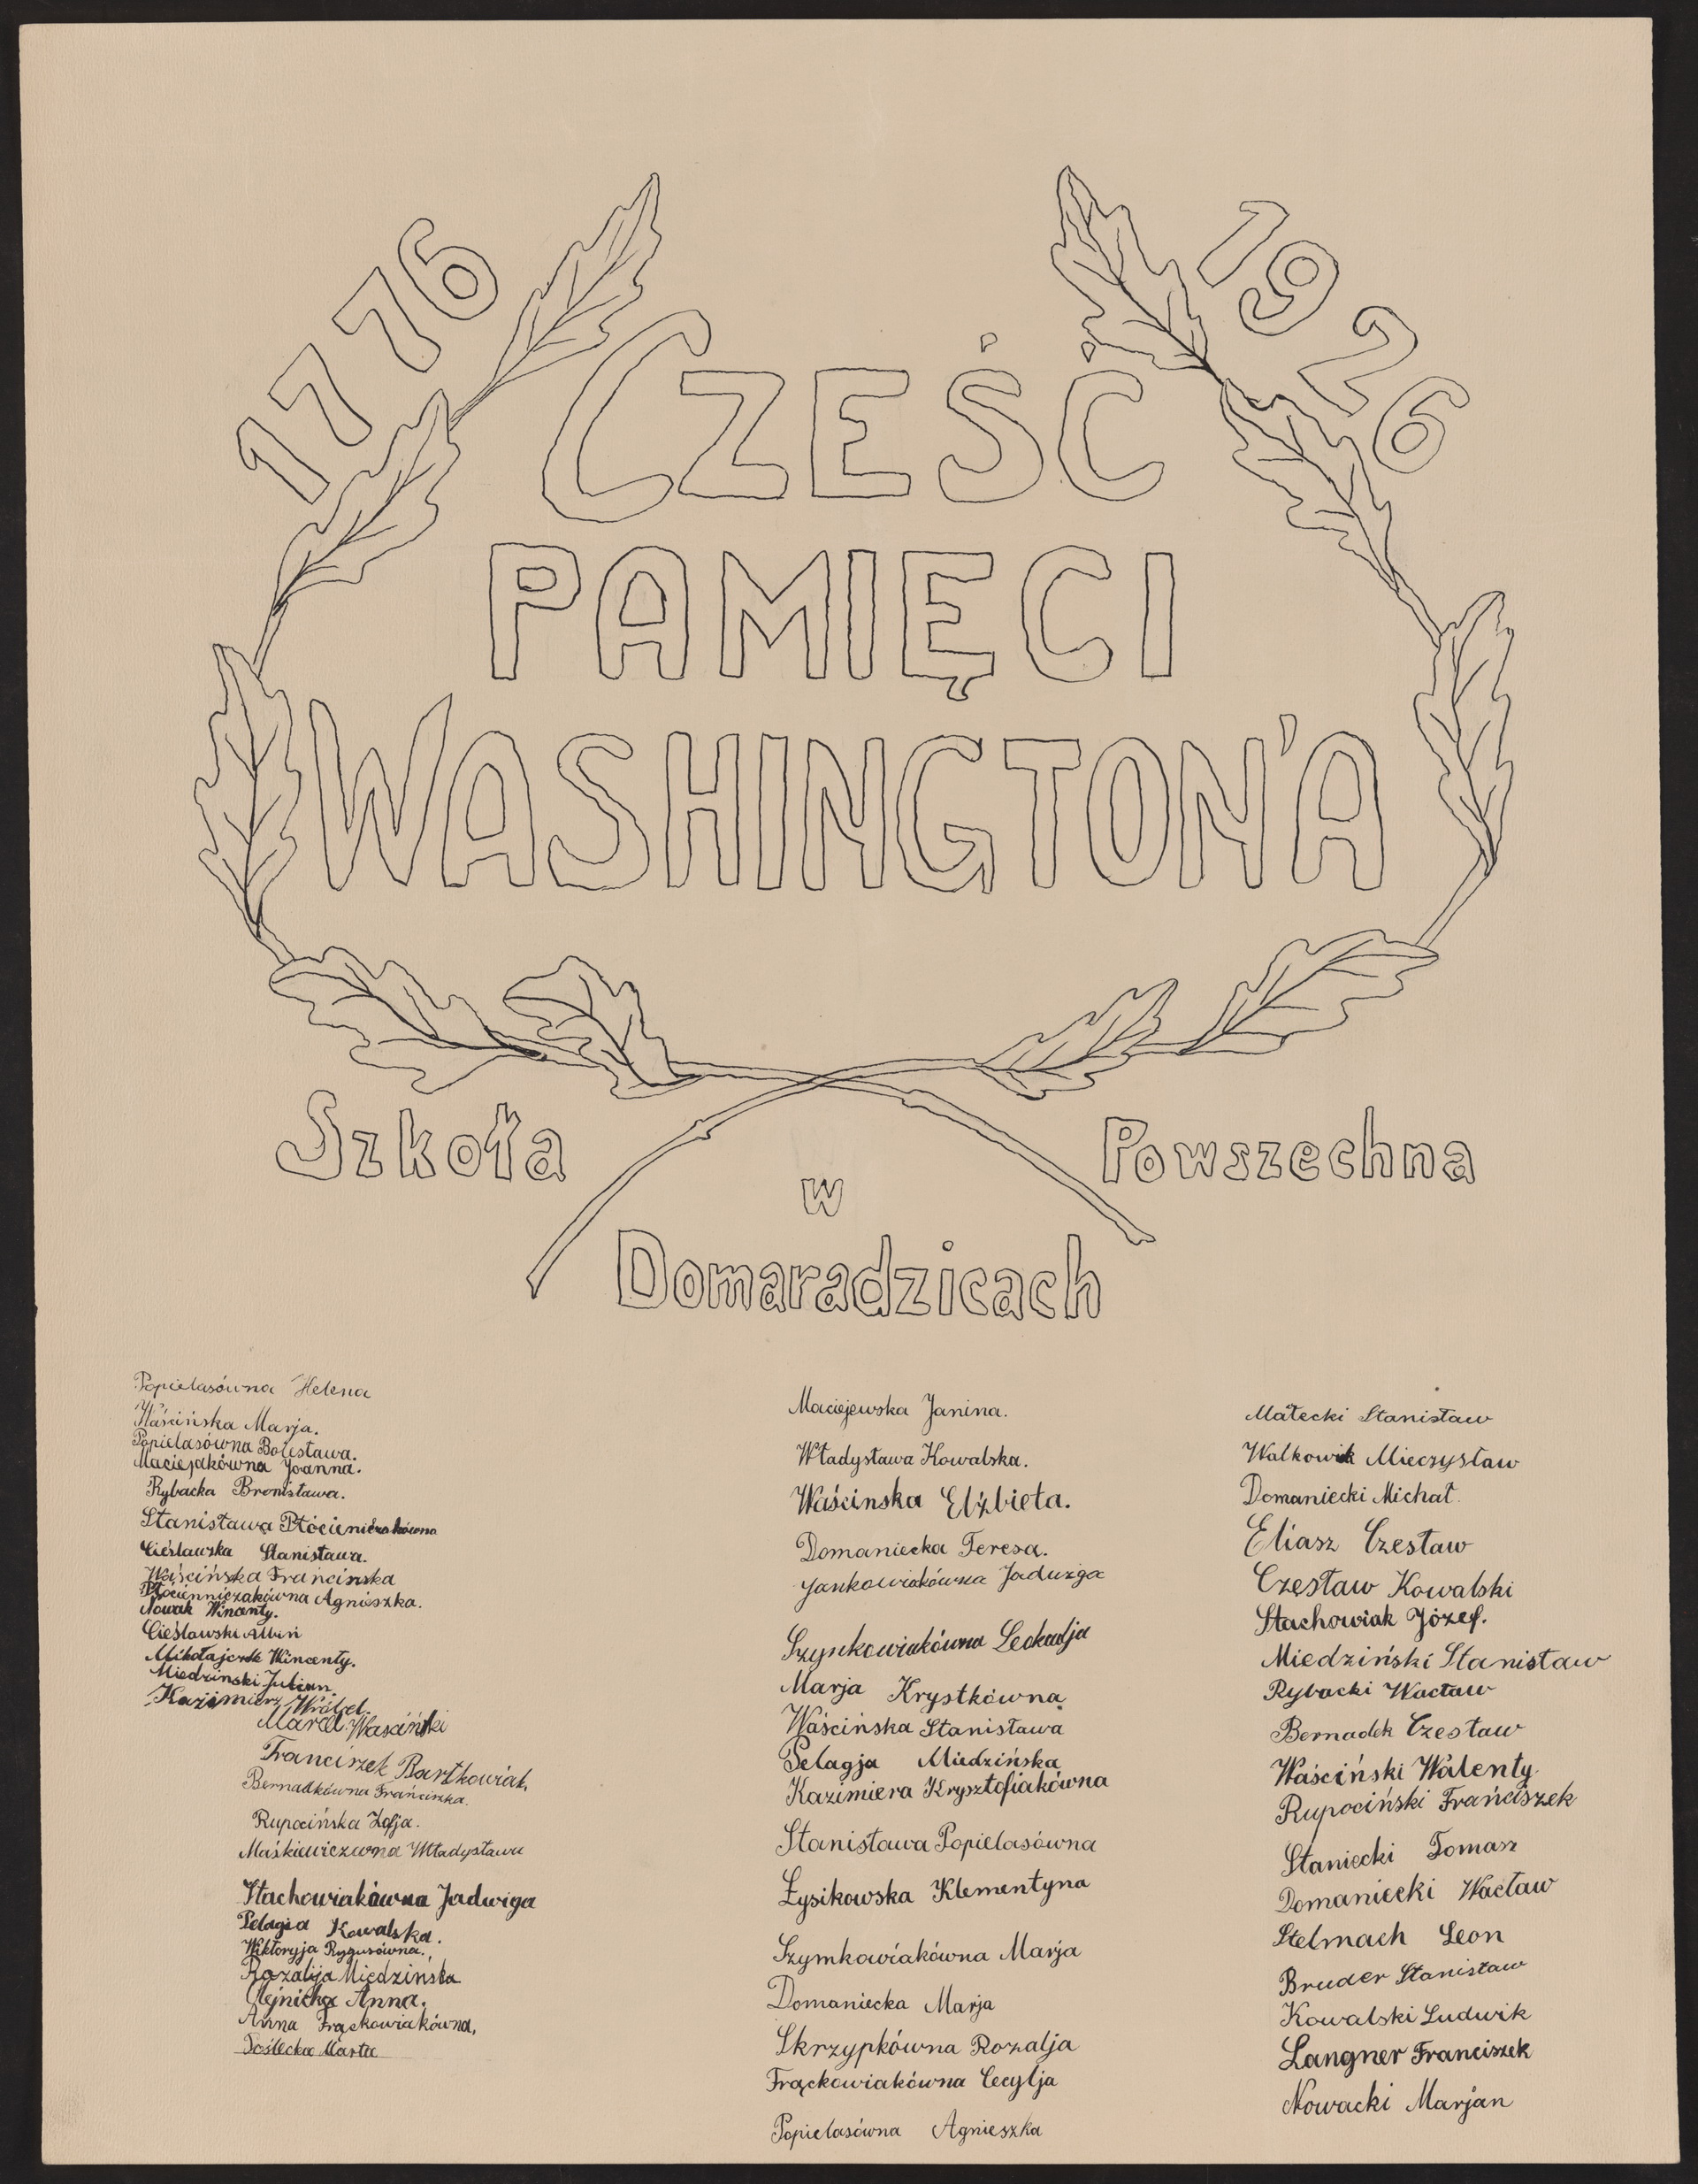 1776
1926
CZEŚĆ
PAMIĘCI
WASHINGTON'A
Szkoła
Powszechna
w
Domaradzicach
Popielasówna Helena
Waścińska Marja.
Popielasówna Bolesława.
Maciejakówna Joanna.
Rybacka Bronisława.
Stanisława Płócieniczakówna
Cieślawska Stanisława.
Waścińska Francinska
Płócienniczakówna Agnieszka.
Nowak Wincenty.
Cieślawski Albin
Mikołajczak Wincenty.
Miedzinski Julian.
Kazimierz Wróbel.
Marcel Waściński
Franciszek Bartkowiak.
Bernadkówna Franciszka.
Rupocińska Zofja.
Maśkiewiczówna Władysława
Stachowiakówna Jadwiga
Pelagia Kowalska.
Wiktoryja Rygusówna.
Rozalija Miedzińska
Olejnicka Anna.
Anna Frąckowiakówna,
Toślecka Marta
Maciejewska Janina.
Władysława Kowalska.
Waścinska Elżbieta.
Domaniecka Teresa.
Jankowiakówna Jadwiga
Szynkowiakówna Leokadja
Marja Krystkówna
Waścińska Stanisława
Pelagja Miedzińska
Kazimiera Krysztofiakówna
Stanisława Popielasówna
Łysikowska Klementyna
Szymkowiakówna Marja
Domaniecka Marja
Skrzypkówna Rozalja
Frąckowiakówna Cecylja
Popielasówna Agnieszka
Małecki Stanisław
Walkowik Mieczysław
Domaniecki Michał.
Eliasz Czesław
Częsław Kowalski
Stachowiak Józef.
Miedziński Stanisław
Rybacki Wacław
Bernadek Czesław
Waściński Walenty
Rupociński Franciszek
Staniecki Tomasz
Domaniecki Wacław
Stelmach Leon
Bruder Stanisław
Kowalski Ludwik
Langner Franciszek
Nowacki Marjan